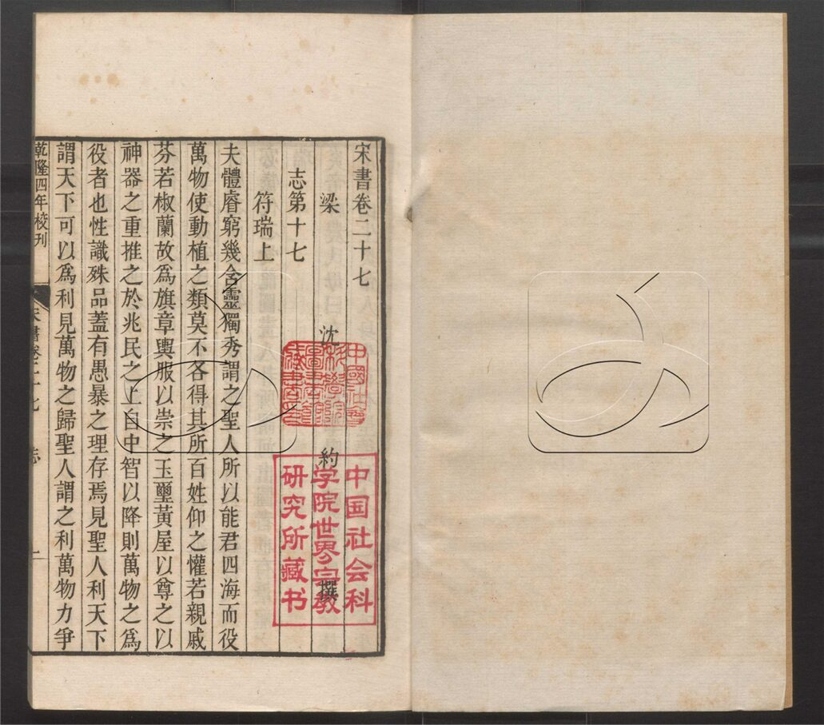 宋書卷二十七
梁 沈 約 撰
志第十七
符瑞上
夫體睿窮幾含靈獨秀謂之聖人所以能君四海而役
萬物使動植之類莫不各得其所百姓仰之懽若親戚
芬若椒蘭故爲旗章輿服以崇之玉璽黃屋以尊之以
神器之重推之於兆民之上自中智以降則萬物之爲
役者也性識殊品蓋有愚暴之理存焉見聖人利天下
謂天下可以爲利見萬物之歸聖人謂之利萬物力爭
乾隆四年校刊 宋書卷二十七 志 一
中國社會
科學院
圖書館
藏書
中国社会科
学院世界宗教
研究所藏书